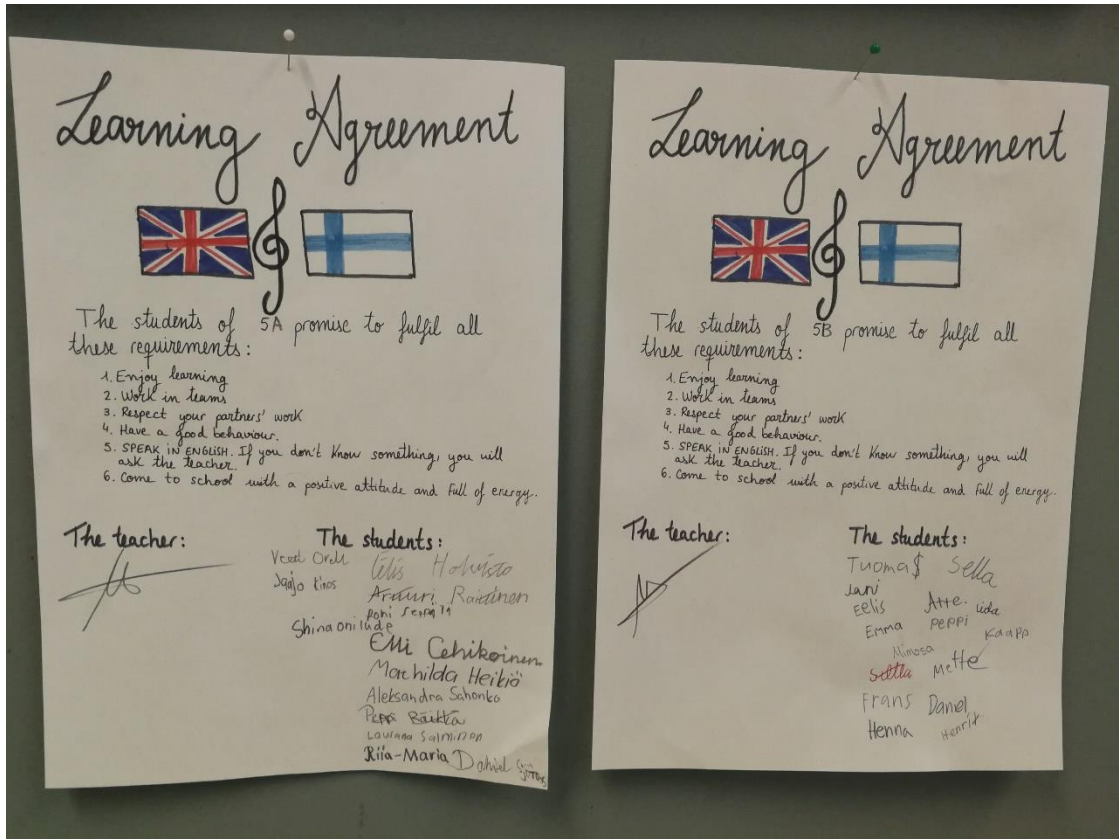 Learning Agreement
The students of 5A promise to fulfil all
these requirements:
1. Enjoy learning
2. Work in teams
3. Respect your partners' work
4. Have a good behaviour.
5. SPEAK IN ENGLISH. If you don't know something, you will
ask the teacher.
6. Come to school with a positive attitude and full of energy.
The teacher:
The students:
Elli
Heikiö
Aleksandra
Peppi
Salminen
Riia-Maria
Learning Agreement
The students of 5B promise to fulfil all
these requirements:
1. Enjoy learning
2. Work in teams
3. Respect your partners' work
4. Have a good behaviour.
5. SPEAK IN ENGLISH. If you don't know something, you will
ask the teacher.
6. Come to school with a positive attitude and full of energy.
The teacher:
The students:
Tuoma$ Sella
Jani
Eelis Atte. Iida
Emma Peppi
Kaapo
Mimosa
Mette
Frans Daniel
Henna